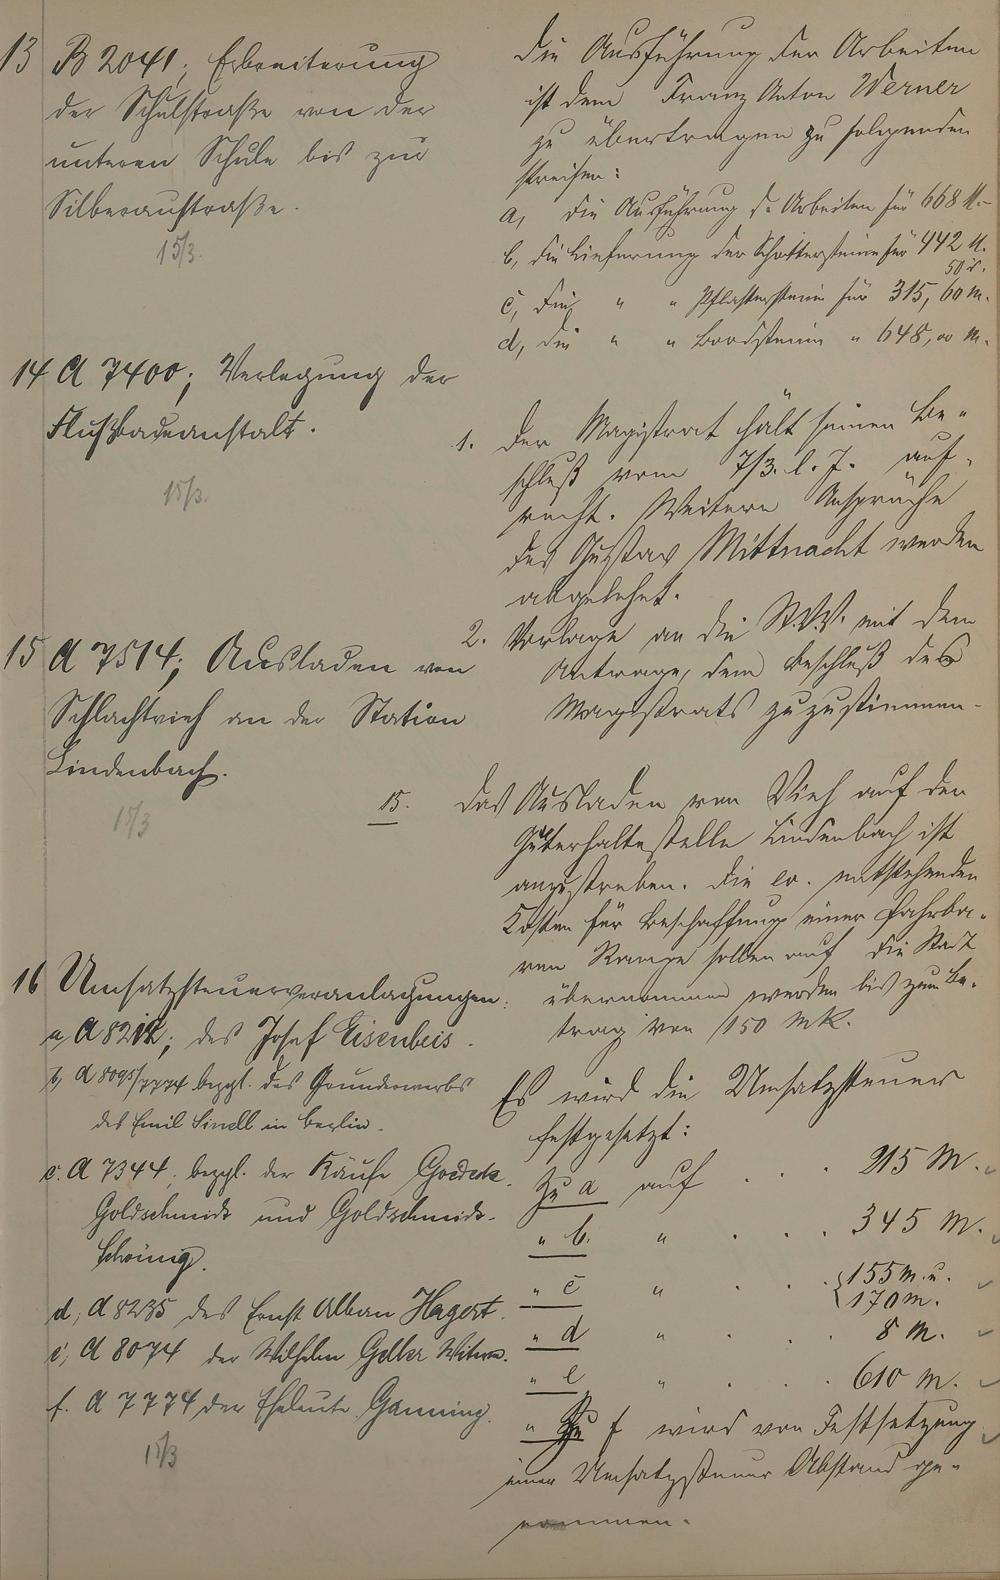 13 B 2041; Erbreiterung
der Schulstraße von der
unteren Schule bis zur
Silberaustraße.
15/3.
Die Ausführung der Arbeiten
ist dem Franz Anton Werner
zu übertragen zu folgenden
Preisen:
a, die Ausführung d. Arbeiten für 668 M.-
b, die Lieferung der Schottersteine für 442 M.
50 d.
c, die " " Pflastersteine für 315,60 M.
d, die " " Bordsteine " 648,00 M.
14 A 7400; Verlegung der
Flußbadeanstalt.
15/3.
1. Der Magistrat hält seinen Be-
schluß vom 7/3. l. J. auf-
recht. Weitere Ansprüche
des Gustav Mittnacht werden
abgelehnt.
2. Vorlage an die St.V.V. mit dem
Antrage, dem Beschluß des
Magistrats zuzustimmen.
15 A 7514; Ausladen von
Schlachtvieh an der Station
Lindenbach.
15/3
15. Das Ausladen von Vieh auf der
Güterhaltestelle Lindenbach ist
anzustreben. Die ev. entstehenden
Kosten für Beschaffung einer fahrba-
ren Rampe sollen auf die Stadt
übernommen werden bis zum Be-
trag von 150 Mk.
16 Umsatzsteuerveranlagungen:
a, A 8212; des Josef Eisenbeis.
b, A 8095/7774 bezgl. des Grunderwerbs
des Emil Sindl in Berlin.
c. A 7344; bezgl. der Käufe Goedecke
Goldschmidt und Goldschmidt-
Schöning.
d, A 8235 des Ernst Alban Hagert.
e, A 8074 der Wilhelm Gelber Witwe.
f. A 7774 der Eheleute Ganning.
15/3
Es wird die Umsatzsteuer
festgesetzt:
Zu a auf . . 915 M.
" b. " . . . 345 M.
" c " . . . 155 M. u.
170 M.
" d " . . . 8 M.
" e " . . . 610 M.
" Zu f wird von Festsetzung
einer Umsatzsteuer Abstand ge-
nommen.